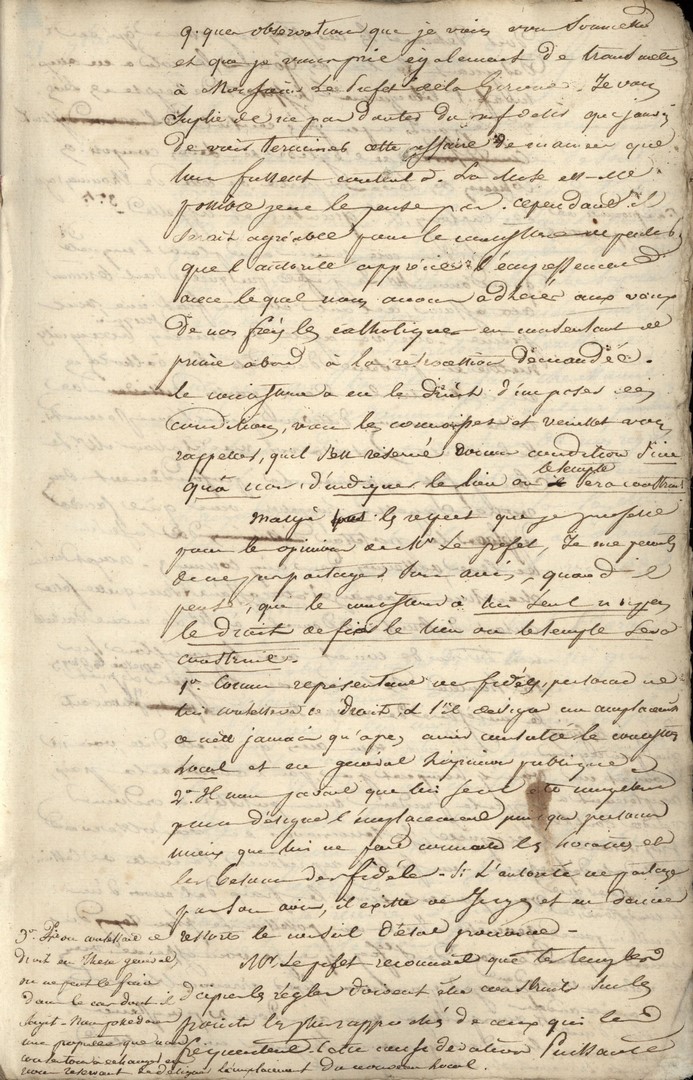 q. ques observations que je vais vous soumettre
et que je vous prie également de transmettre
à Monsieur Le Préfet de la Gironde. Je vous
Suplie de ne pas douter du vif désir que j'aurai
de voir terminer cette affaire de manière que
tous fussent contents. La chose est-elle
possible je ne le pense pas. cependant il
serait agréable pour le consistoire
que l'autorité appréciat l'empressement
avec lequel nous avons adhéré aux vœux
de nos frères les catholiques en consentant de
prime abord à la retrocession demandée.
le consistoire a eu le droit d'imposer des
conditions, vous les connaissez et veuillez vous
rappeller, qu'il s'est réservé comme condition sine
qua non d'indiquer le lieu où le temple sera construit
Malgré le respect que je professe
pour le opinion de Mr. Le préfet, Je me permets
de ne pas partager son avis, quand il
pense, que le consistoire à lui seul n'a pas
le droit de fixer le lieu ou le temple sera
construit.
1o. Comme représentant des fidèles, personne ne
lui conteste ce droit. & s'il désigne un emplacement
ce n'est jamais qu'après avoir consulté le consistoire
local et en général l'opinion publique
2o. Il nous parait que lui seul est compétent
pour désigner l'emplacement puis que personne
mieux que lui ne peut connaitre les localités et
les besoins des fidèles. Si L'autorité ne partage
pas son avis, il existe des Juges et en dernier
ressort le conseil d'état prononce.
Mr. Le préfet reconnait que les temples
d'après les règles doivent être construits sur les
points les plus rapprochés de ceux qui les
fréquentent. Cette considération Puissante
3o. Si on contestait ce
droit en Thèse générale
on ne peut le faire
dans le cas dont il
s'agit. Nous possédons
une propriété que nous
consentons à échanger en
nous reservant de désigner l'emplacement du nouveau local.